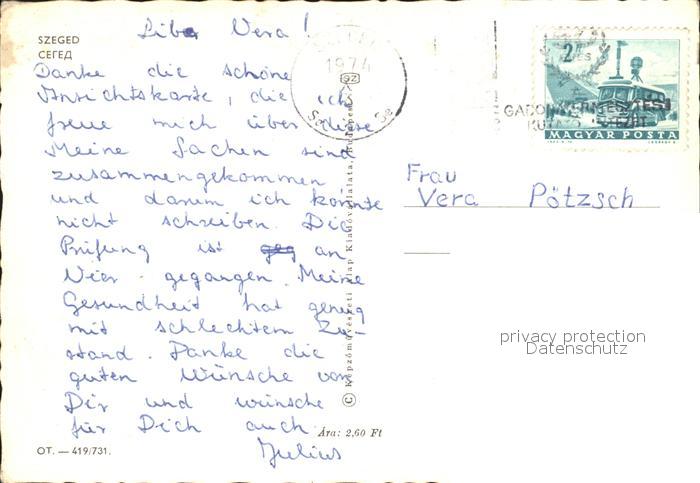 SZEGED
СЕГЕД
Liebe Vera!
Danke die schöne
Ansichtskarte, die ich
freue mich über diese.
Meine Sachen sind
zusammengekommen,
und darum ich konnte
nicht schreiben. Die
Prüfung ist geg an
Vier gegangen. Meine
Gesundheit hat genug
mit schlechtem Zu-
stand. Danke die
guten Wünsche von
Dir und wünsche
für Dich auch
Julius
OT. — 419/731.
Ára: 2,60 Ft
© Képzőművészeti Alap Kiadóvállalata, Budapest
1974
MAGYAR POSTA
Frau
Vera Pötzsch
privacy protection
Datenschutz